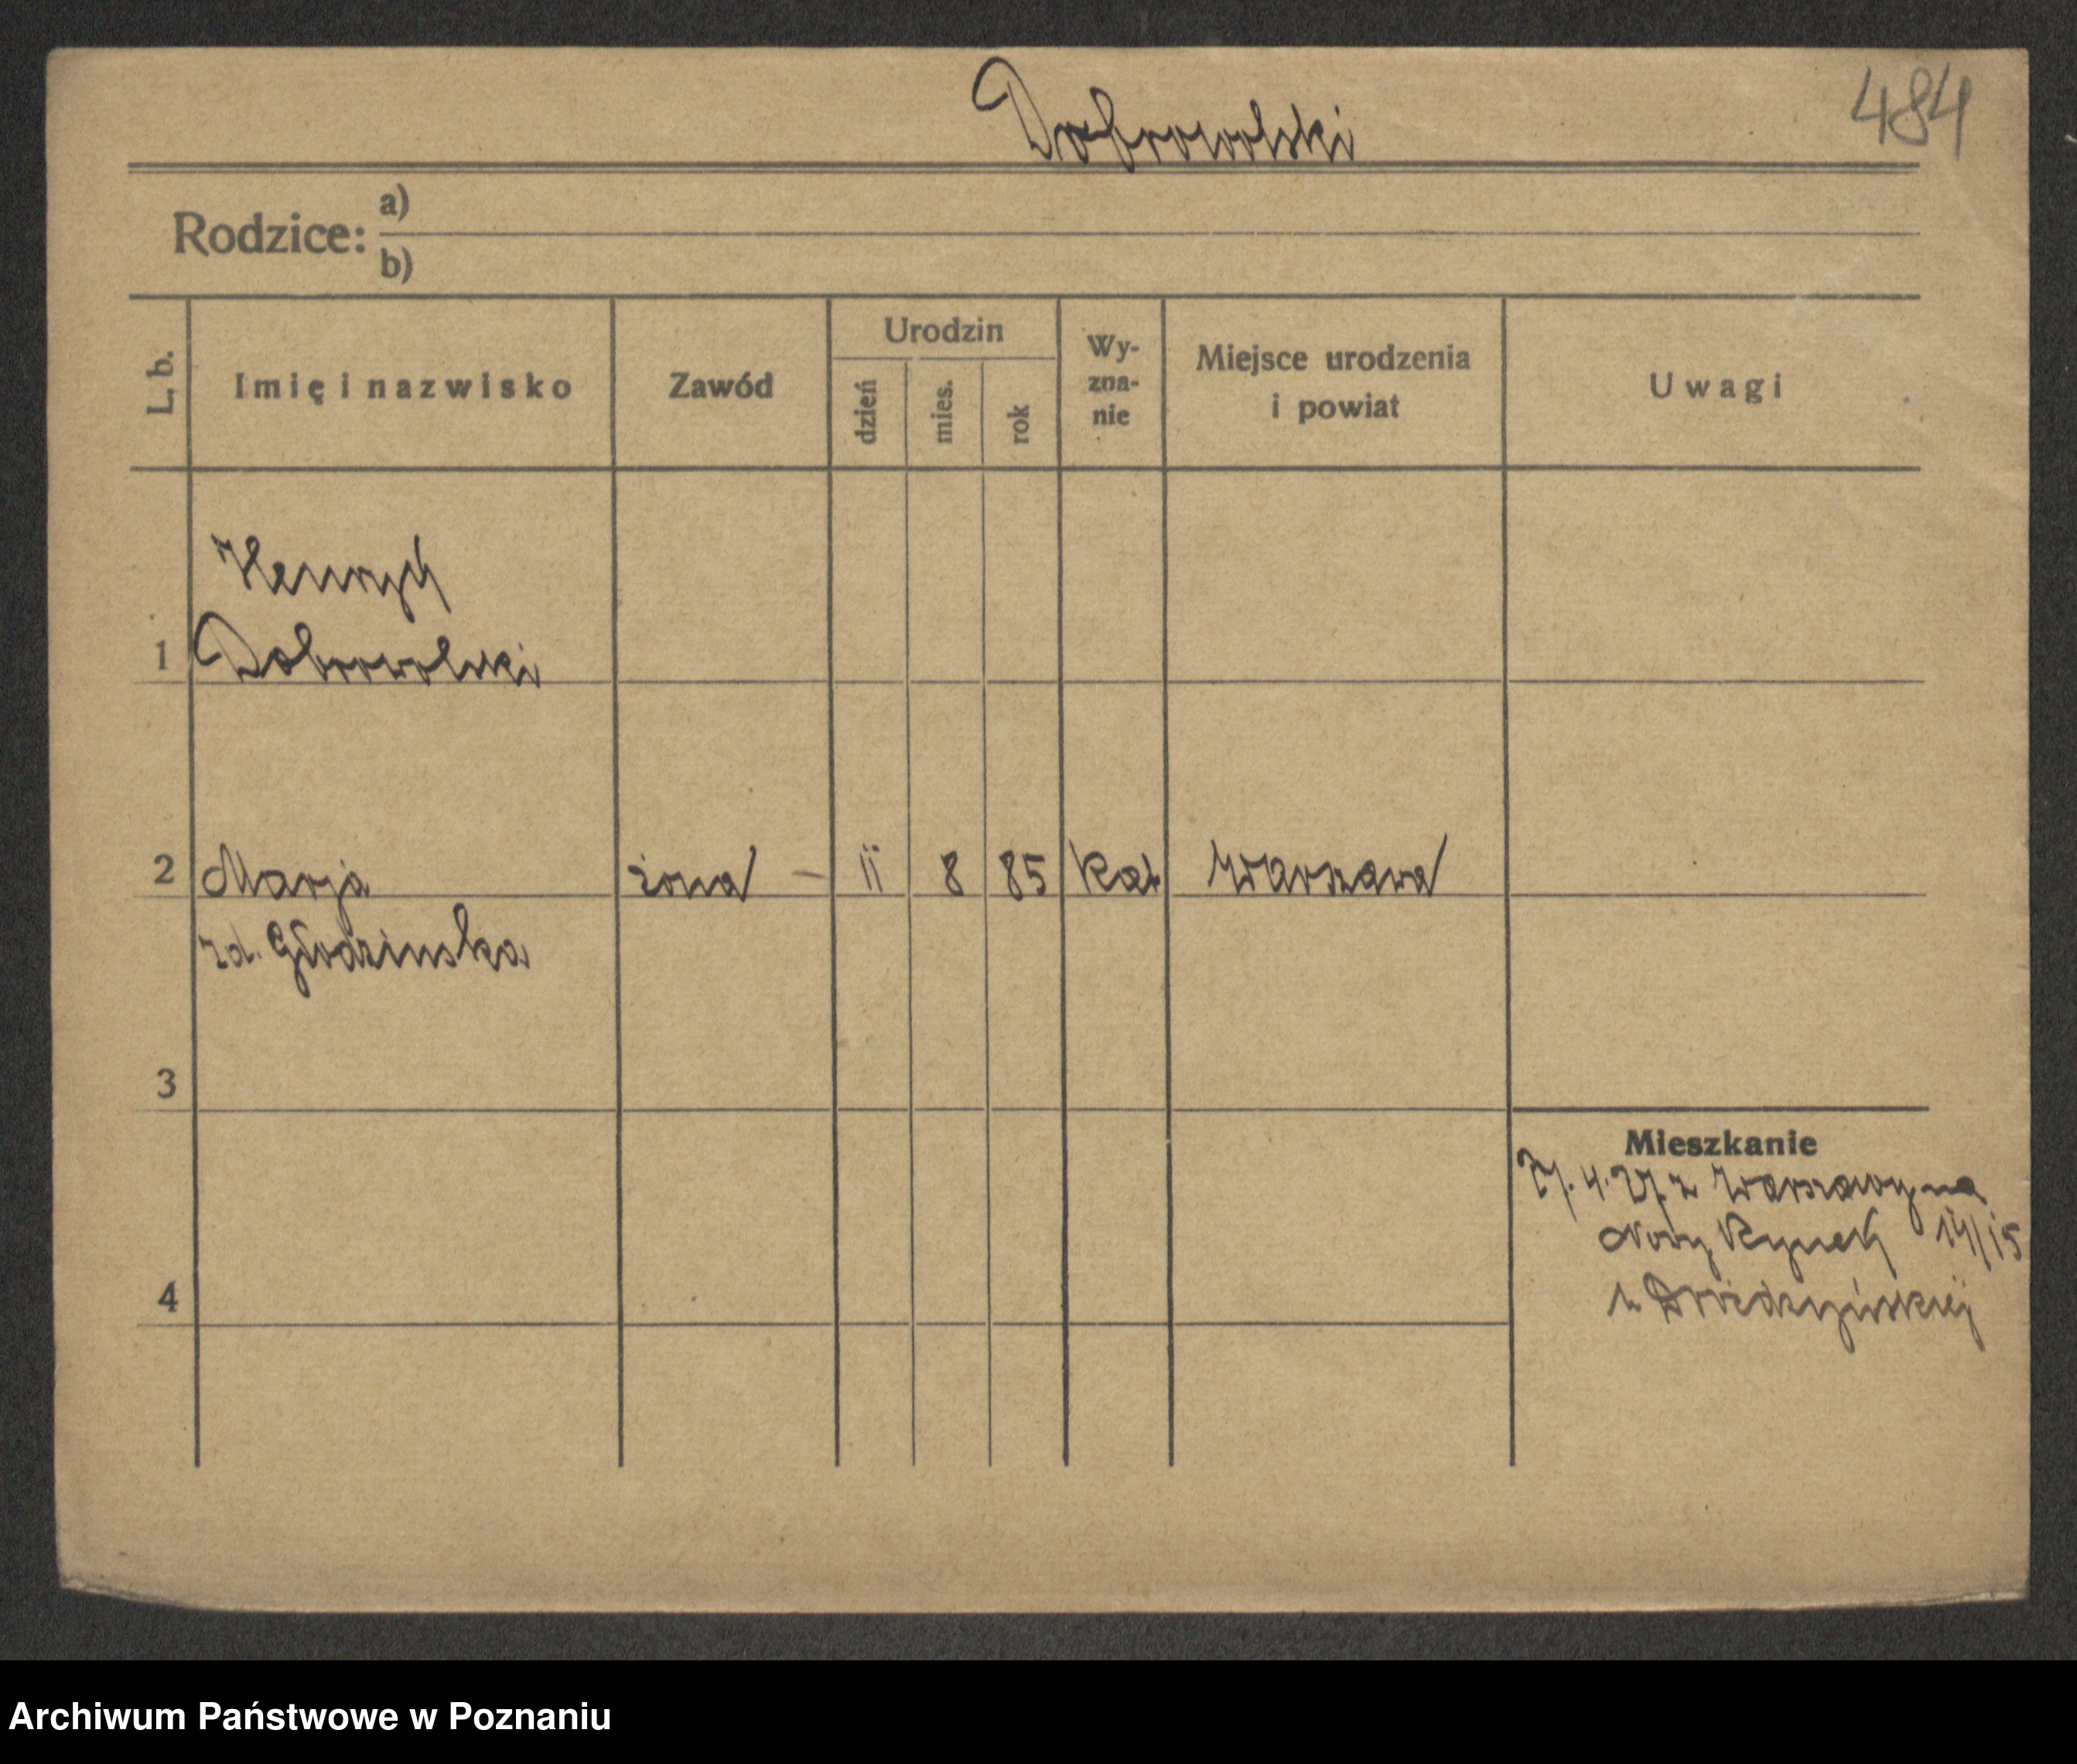 Dobrowolski
484
Rodzice: a)
b)
L. b.
Imię i nazwisko
Zawód
Urodzin
dzień
mies.
rok
Wy-
zna-
nie
Miejsce urodzenia
i powiat
Uwagi
Henryk
1 Dobrowolski
2 Marja żona 11 8 85 kat Warszawa
zd. Głodzinska
3
Mieszkanie
27. 4. 27. z Warszawy na
Nowy Rynek 14/15
4
u Droździńskiej
Archiwum Państwowe w Poznaniu